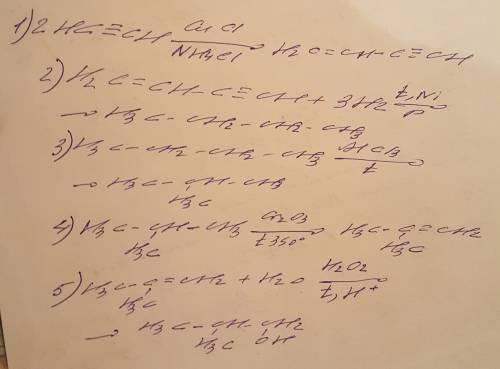 1) 2 HC≡CH CuCl NH4Cl → H2C=CH-C≡CH
2) H2C=CH-C≡CH + 3H2 t, Ni p
→ H3C-CH2-CH2-CH3
3) H3C-CH2-CH2-CH3 AlCl3 t
→ H3C-CH-CH3
H3C
4) H3C-CH-CH3 Cr2O3 t 350° → H3C-C=CH2
H3C H3C
5) H3C-C=CH2 + H2O H2O2 t, H+
H3C
→ H3C-CH-CH2
H3C OH